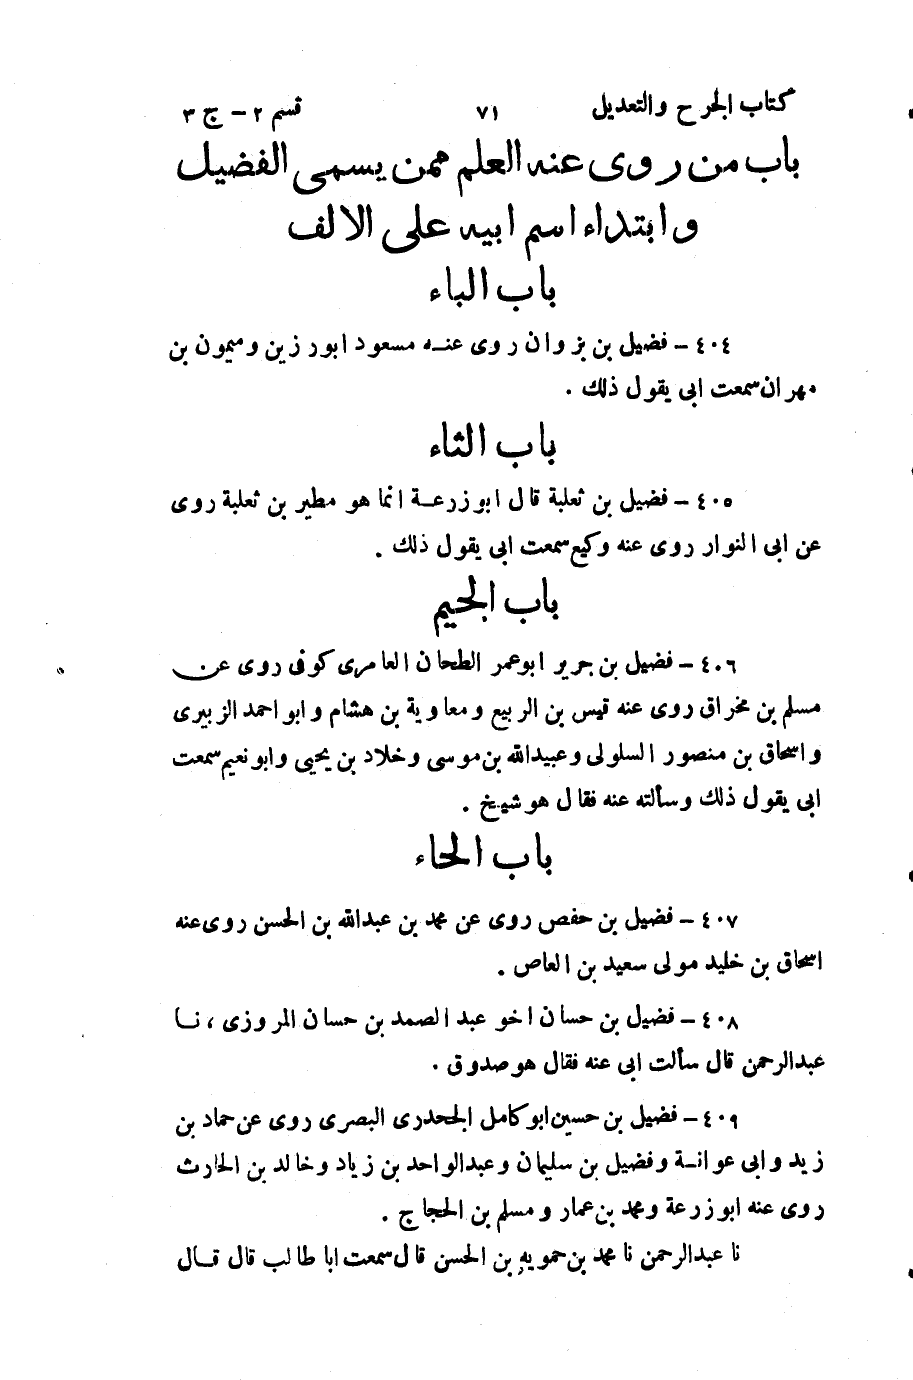 كتاب الجرح والتعديل ٧١ قسم ٢ – ج ٣
باب من روى عنه العلم ممن يسمى الفضيل
وابتداء اسم ابيه على الالف
باب الباء
٤٠٤ – فضيل بن بزوان روى عنه مسعود ابورزين وميمون بن
مهران سمعت ابى يقول ذلك .
باب الثاء
٤٠٥ – فضيل بن ثعلبة قال ابوزرعة انما هو مطير بن ثعلبة روى
عن ابى النوار روى عنه وكيع سمعت ابى يقول ذلك .
باب الجيم
٤٠٦ – فضيل بن جرير ابوعمر الطحان العامرى كوفى روى عن
مسلم بن مخراق روى عنه قيس بن الربيع ومعاوية بن هشام وابو احمد الزبيرى
واسحاق بن منصور السلولى وعبيدالله بن موسى وخلاد بن يحيى وابونعيم سمعت
ابى يقول ذلك وسألته عنه فقال هو شيخ .
باب الحاء
٤٠٧ – فضيل بن حفص روى عن محمد بن عبدالله بن الحسن روى عنه
اسحاق بن خليد مولى سعيد بن العاص .
٤٠٨ – فضيل بن حسان اخو عبد الصمد بن حسان المروزى ، نا
عبدالرحمن قال سألت ابى عنه فقال هو صدوق .
٤٠٩ – فضيل بن حسين ابوكامل الجحدرى البصرى روى عن حماد بن
زيد وابى عوانة وفضيل بن سليمان وعبدالواحد بن زياد وخالد بن الحارث
روى عنه ابوزرعة ومحمد بن عمار ومسلم بن الحجاج .
نا عبدالرحمن نا محمد بن حمويه بن الحسن قال سمعت ابا طالب قال قال